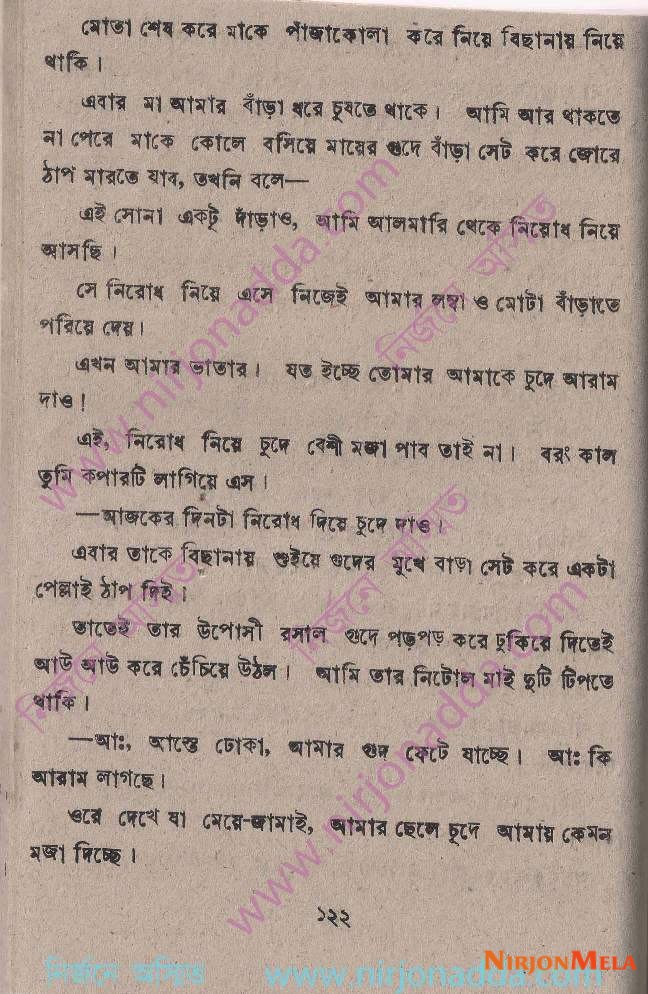 মোতা শেষ করে মাকে পাঁজাকোলা করে নিয়ে বিছানায় নিয়ে
থাকি।
এবার মা আমার বাঁড়া ধরে চুষতে থাকে। আমি আর থাকতে
না পেরে মাকে কোলে বসিয়ে মায়ের গুদে বাঁড়া সেট করে জোরে
ঠাপ মারতে যাব, তখনি বলে—
এই সোনা একটু দাঁড়াও, আমি আলমারি থেকে নিরোধ নিয়ে
আসছি।
সে নিরোধ নিয়ে এসে নিজেই আমার লম্বা ও মোটা বাঁড়াতে
পরিয়ে দেয়।
এখন আমার ভাতার। যত ইচ্ছে তোমার আমাকে চুদে আরাম
দাও!
এই, নিরোধ নিয়ে চুদে বেশী মজা পাব তাই না। বরং কাল
তুমি কপারটি লাগিয়ে এস।
—আজকের দিনটা নিরোধ দিয়ে চুদে দাও।
এবার তাকে বিছানায় শুইয়ে গুদের মুখে বাড়া সেট করে একটা
পেল্লাই ঠাপ দিই।
তাতেই তার উপোসী রসাল গুদে পড়পড় করে ঢুকিয়ে দিতেই
আউ আউ করে চেঁচিয়ে উঠল। আমি তার নিটোল মাই দুটি টিপতে
থাকি।
—আঃ, আস্তে ঢোকা, আমার গুদ ফেটে যাচ্ছে। আঃ কি
আরাম লাগছে।
ওরে দেখে যা মেয়ে-জামাই, আমার ছেলে চুদে আমায় কেমন
মজা দিচ্ছে।
১২২
নির্জনে অয়িত www.nirjonadda.com
NIRJONMELA